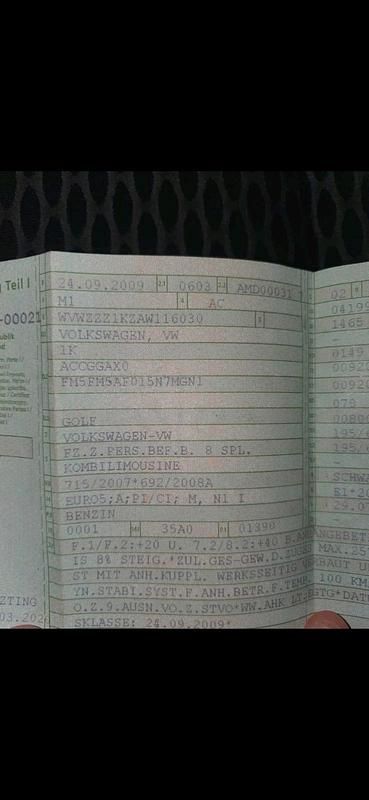 Teil I
24.09.2009 2.1 0603 2.2 AMD00031
M1 4 AC
-00021
WVWZZZ1KZAW116030
VOLKSWAGEN, VW
1K
ACCGGAX0
FM5FM5AF015N7MGN1
GOLF
VOLKSWAGEN-VW
FZ.Z.PERS.BEF.B. 8 SPL.
KOMBILIMOUSINE
715/2007*692/2008A
EURO5;A;PI/CI; M, N1 I
BENZIN
0001 35A0 01390
F.1/F.2:+20 U. 7.2/8.2:+40 B.ANHÄNGEBETR
IS 8% STEIG.*ZUL.GES-GEW.D.ZUGES MAX.25
ST MIT ANH.KUPPL. WERKSSEITIG VERBAUT U
YN.STABI.SYST.F.ANH.BETR.F.TEMP. 100 KM
O.Z.9.AUSN.VO.Z.STVO*WW.AHK LT.EGTG*DAT
SKLASSE: 24.09.2009*
02
04199
1465
-
0149
0092
0092
078
0080
195/
195/
-
SCHWA
29.0
ZTING
03.202